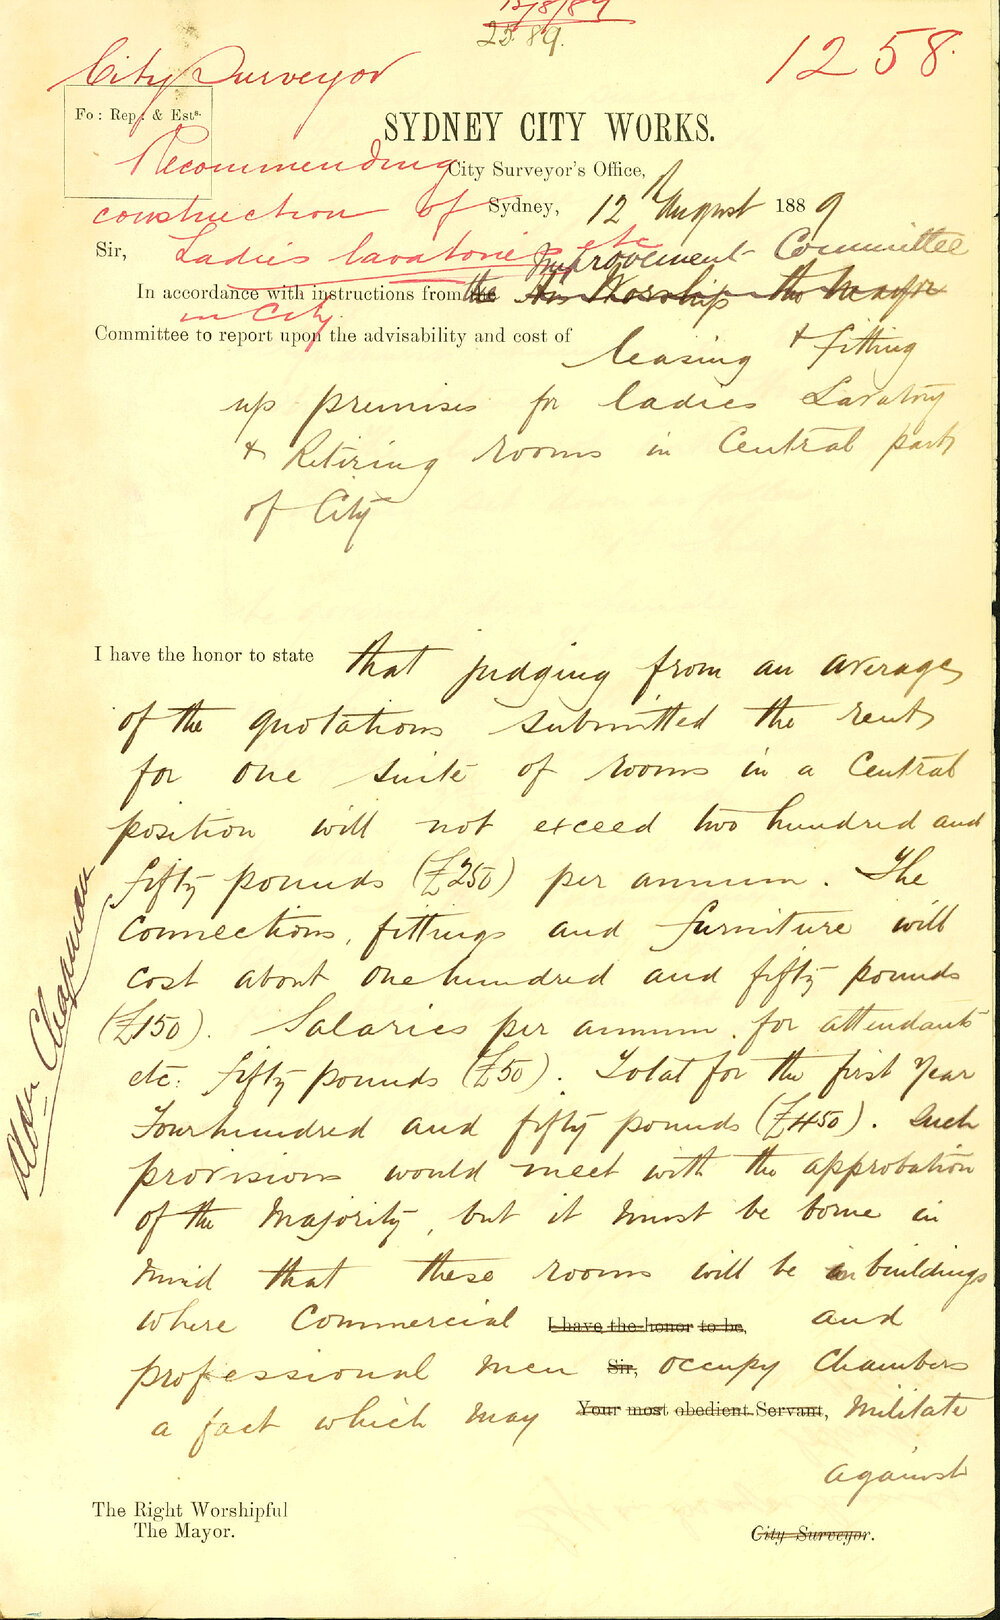 12/8/89
23.89.
1258.
City Surveyor
Fo: Rep. & Ests.
Recommending
construction of
Ladies lavatories etc
in City
SYDNEY CITY WORKS.
City Surveyor's Office,
Sydney, 12 August 1889
Sir,
Improvement Committee
In accordance with instructions from the His Worship the Mayor
Committee to report upon the advisability and cost of
leasing & fitting
up premises for ladies Lavatory
& Retiring rooms in Central part
of City
I have the honor to state that judging from an average
of the quotations submitted the rent
for one suite of rooms in a Central
position will not exceed two hundred and
fifty pounds (£250) per annum. The
connections, fittings and furniture will
cost about one hundred and fifty pounds
(£150). Salaries per annum for attendants
etc: fifty pounds (£50). Total for the first Year
Fourhundred and fifty pounds (£450). Such
provisions would meet with the approbation
of the Majority, but it must be borne in
mind that these rooms will be in buildings
where Commercial I have the honor to be, and
professional men Sir, occupy Chambers
a fact which may Your most obedient Servant, militate
against
Alder Chapman
The Right Worshipful
The Mayor.
City Surveyor.